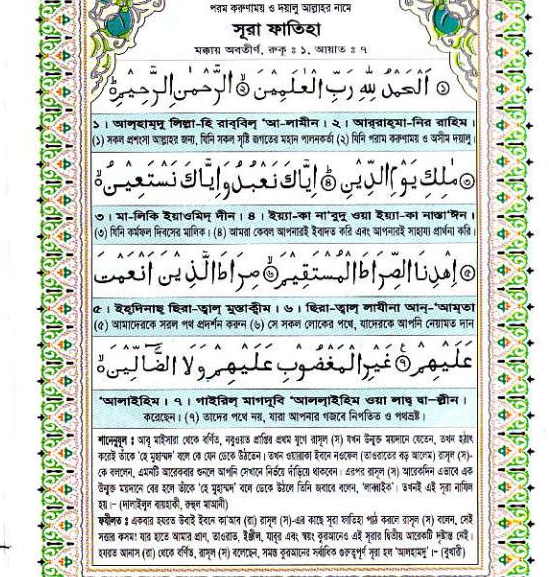 পরম করুণাময় ও দয়ালু আল্লাহর নামে
সূরা ফাতিহা
মক্কায় অবতীর্ণ, রুকু : ১, আয়াত : ৭
① اَلْحَمْدُ لِلّٰهِ رَبِّ الْعٰلَمِيْنَ ② الرَّحْمٰنِ الرَّحِيْمِ
১ । আলহামদু লিল্লা-হি রাব্বিল্ 'আ-লামীন । ২ । আর্‌রাহ্‌মা-নির রাহিম ।
(১) সকল প্রশংসা আল্লাহর জন্য, যিনি সকল সৃষ্টি জগতের মহান পালনকর্তা (২) যিনি পরাম করুণাময় ও অসীম দয়ালু।
③ مٰلِكِ يَوْمِ الدِّيْنِ ④ اِيَّاكَ نَعْبُدُ وَاِيَّاكَ نَسْتَعِيْنُ
৩ । মা-লিকি ইয়াওমিদ্ দীন । ৪ । ইয়্যা-কা না'বুদু ওয়া ইয়্যা-কা নাস্তা'ঈন ।
(৩) যিনি কর্মফল দিবসের মালিক। (৪) আমরা কেবল আপনারই ইবাদত করি এবং আপনারই সাহায্য প্রার্থনা করি।
⑤ اِهْدِنَا الصِّرَاطَ الْمُسْتَقِيْمَ ⑥ صِرَاطَ الَّذِيْنَ اَنْعَمْتَ
৫ । ইহ্‌দিনাছ্ ছিরা-ত্বাল্ মুস্তাক্বীম । ৬ । ছিরা-ত্বাল্ লাযীনা আন্-'আম্‌তা
(৫) আমাদেরকে সরল পথ প্রদর্শন করুন (৬) সে সকল লোকের পথে, যাদেরকে আপনি নেয়ামত দান
عَلَيْهِمْ ⑦ غَيْرِ الْمَغْضُوْبِ عَلَيْهِمْ وَلَا الضَّآلِّيْنَ
'আলাইহিম । ৭ । গাইরিল্ মাগদূবি 'আলাইহিম ওয়া লাদ্ব দ্বা-ল্লীন।
করেছেন। (৭) তাদের পথে নয়, যারা আপনার গজবে নিপতিত ও পথভ্রষ্ট।
শানেনুযূল : আবু মাইসারা থেকে বর্ণিত, নবুওত প্রাপ্তির প্রথম যুগে রাসূল (স) যখন উন্মুক্ত ময়দানে যেতেন, তখন হঠাৎ
করেই তাঁকে 'হে মুহাম্মদ' বলে কে যেন ডেকে উঠতেন। তখন ওয়ারাকা ইবনে নওফেল (তাওরাতের বড় আলেম) রাসূল (স)-
কে বললেন, এমনটি আরেকবার শুনলে আপনি সেখানে নির্ভয়ে দাঁড়িয়ে থাকবেন। এরপর রাসূল (স) আরেকদিন এভাবে এক
উন্মুক্ত ময়দানে বের হলে তাঁকে 'হে মুহাম্মদ' বলে ডেকে উঠলে তিনি জবাবে বলেন, 'লাব্বাইক'। তখনই এই সূরা নাযিল
হয়।- (দালাইলুল বায়হাকী, রুহুল মাআনী)
ফযীলত : একবার হযরত উবাই ইবনে কা'আব (রা) রাসূল (স)-এর কাছে সূরা ফাতিহা পাঠ করলে রাসূল (স) বলেন, সেই
সত্তার কসম! যার হাতে আমার প্রাণ, তাওরাত, ইঞ্জীল, যাবুর এবং স্বয়ং কুরআনেও এই সূরার দ্বিতীয় আরেকটি দৃষ্টান্ত নেই।
হযরত আনাস (রা) থেকে বর্ণিত, রাসূল (স) বলেছেন, সমস্ত কুরআনের সর্বাধিক গুরুত্বপূর্ণ সূরা হল 'আলহামদু'।- (বুখারী)